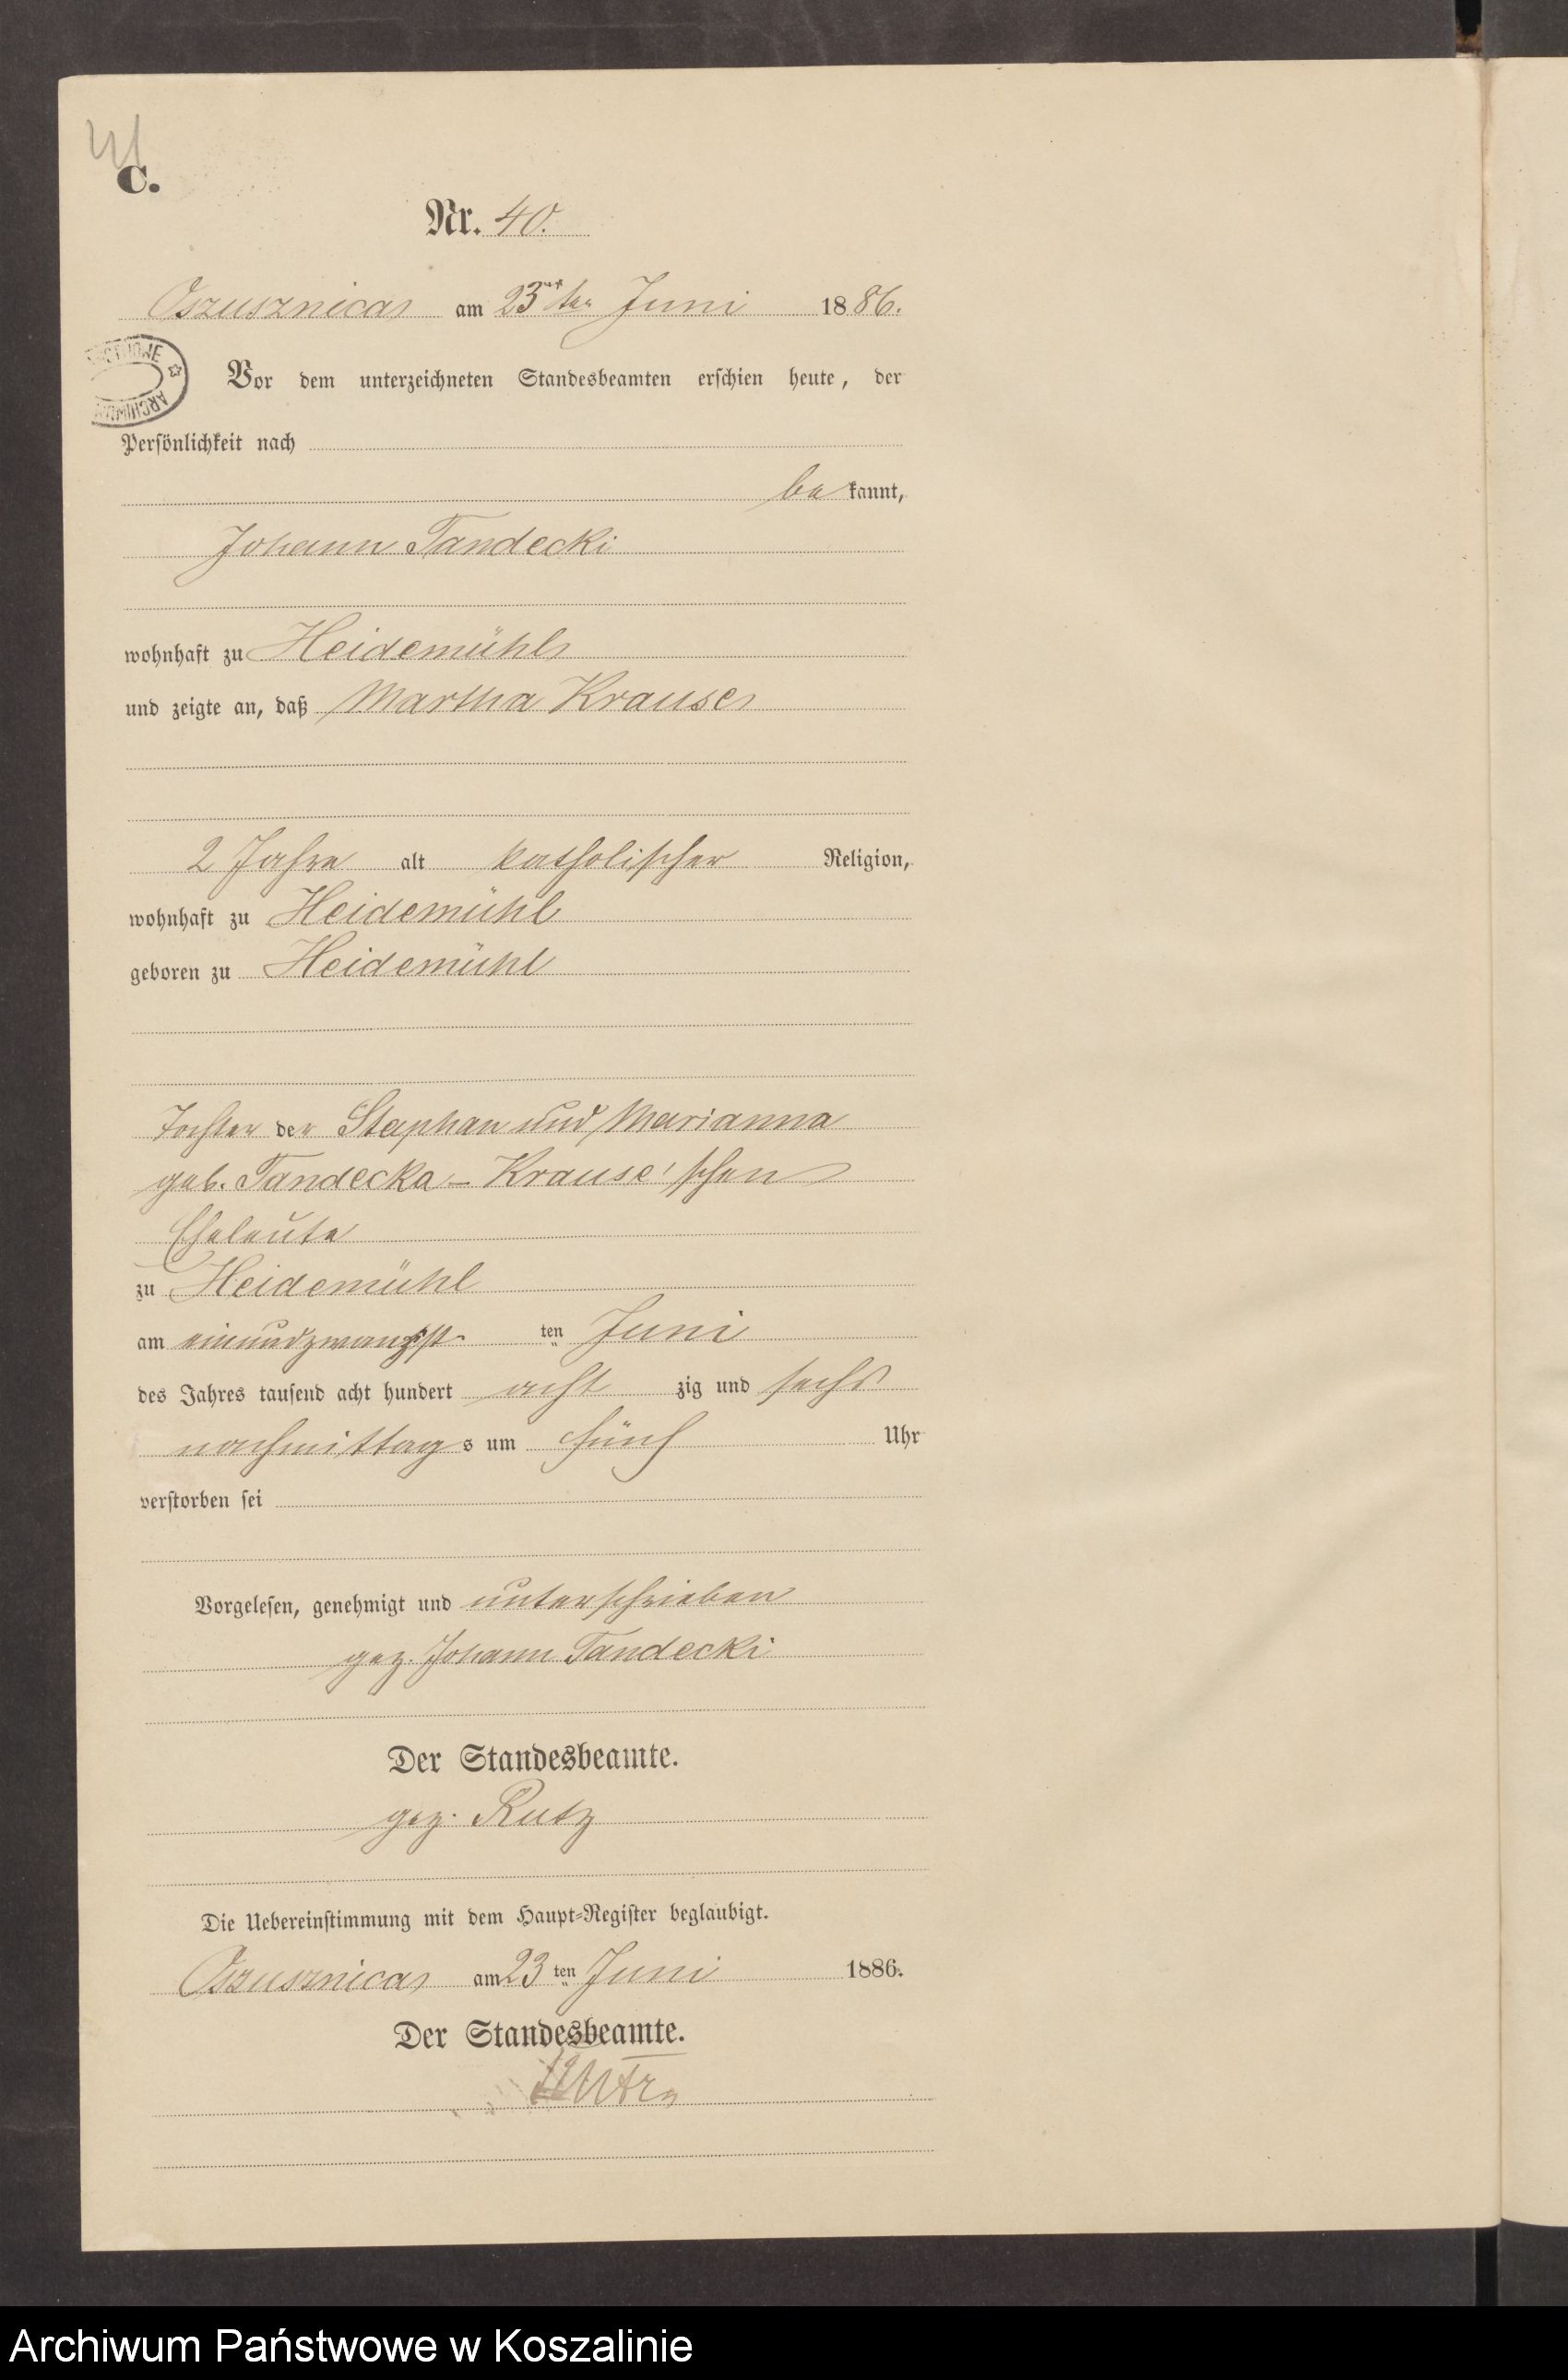 41
C.
Nr. 40.
Oszusznica am 23 ten Juni 1886.
Vor dem unterzeichneten Standesbeamten erschien heute, der
Persönlichkeit nach
be kannt,
Johann Tandecki
wohnhaft zu Heidemühl
und zeigte an, daß Martha Krause
2 Jahre alt katholischer Religion,
wohnhaft zu Heidemühl
geboren zu Heidemühl
Tochter der Stephan und Marianna
geb. Tandecka - Krause'schen
Eheleute
zu Heidemühl
am einundzwanzigst ten Juni
des Jahres tausend acht hundert acht zig und sechs
nachmittag s um fünf Uhr
verstorben sei
Vorgelesen, genehmigt und unterschrieben
gez. Johann Tandecki
Der Standesbeamte.
gez. Rutz
Die Uebereinstimmung mit dem Haupt-Register beglaubigt.
Oszusznica am 23 ten Juni 1886.
Der Standesbeamte.
Archiwum Państwowe w Koszalinie